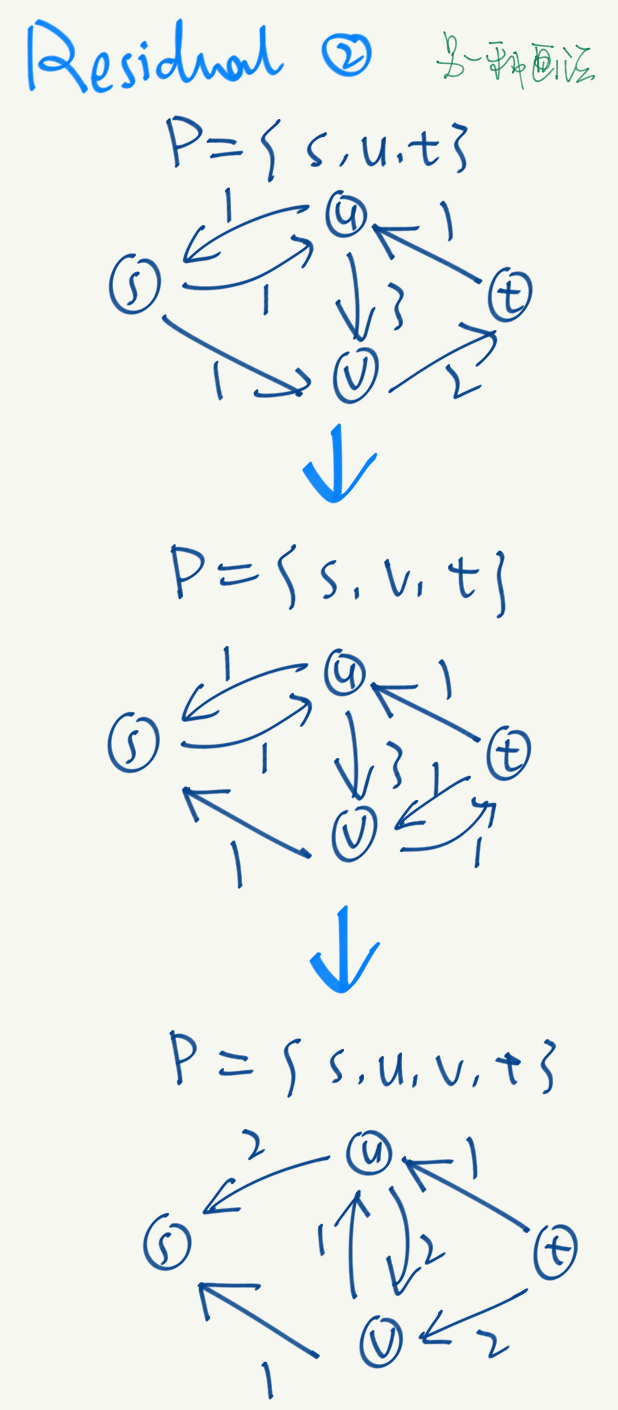 Residual ② 另一种画法
P={s,u,t}
1 u 1
s 1 3 t
1 v 2
P={s,v,t}
1 u 1
s 1 3 1 t
1 v 1
P={s,u,v,t}
2 u 1
s 1 2 t
1 v 2